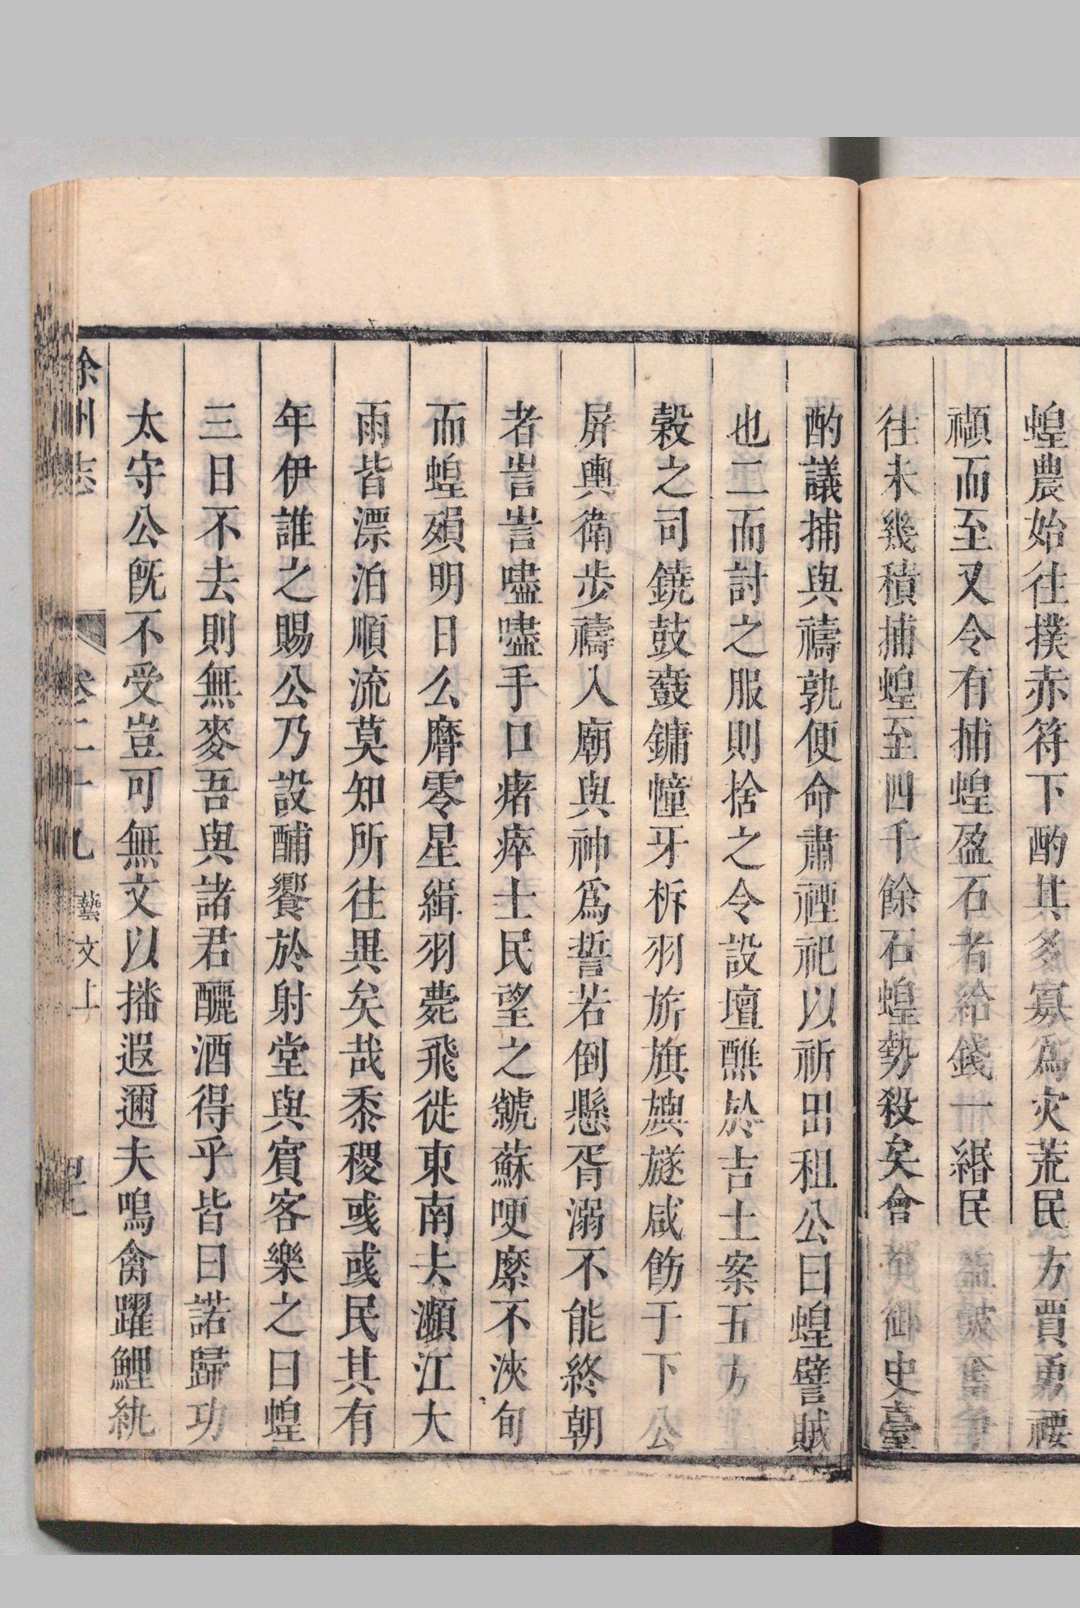 蝗農始往撲赤符下酌其多寡爲灾荒民方賈勇襁
襭而至又令有捕蝗盈石者給錢一緡民益鼓奮爭
往未幾積捕蝗至四千餘石蝗勢殺矣會 御史臺
酌議捕與禱孰便命肅禋祀以祈田祖公曰蝗譬賊
也二而討之服則捨之令設壇醮於吉土案五方
穀之司鐃鼓鼖鏞幢牙柝羽旂旗旟旞咸飭于下公
屏輿衛步禱入廟與神爲誓若倒懸胥溺不能終朝
者訔訔嚍嚍手口瘏瘁士民望之虩蘇哽縻不浹旬
而蝗殞明日么麿零星緝羽薨飛徙東南夫瀕江大
雨皆漂泊順流莫知所往異矣哉黍稷彧彧民其有
年伊誰之賜公乃設酺饗於射堂與賓客樂之曰蝗
三日不去則無麥吾與諸君釃酒得乎皆曰諾歸功
太守公旣不受豈可無文以播遐邇夫鳴禽躍鯉紈
徐州志 卷二十九 藝文上